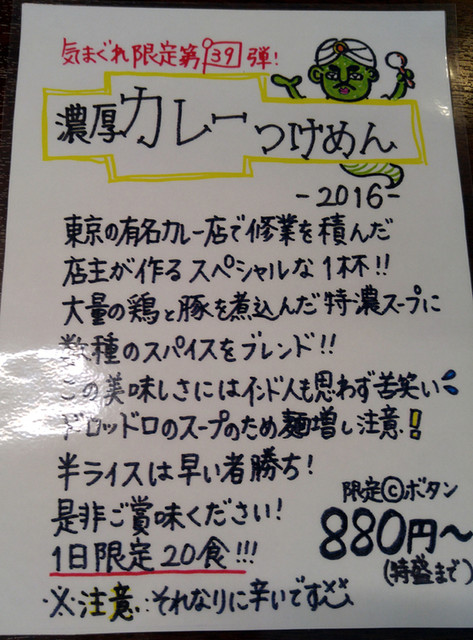 気まぐれ限定第39弾!
濃厚カレーつけめん
-2016-
東京の有名カレー店で修業を積んだ
店主が作るスペシャルな1杯!!
大量の鶏と豚を煮込んだ特濃スープに
数種のスパイスをブレンド!!
この美味しさにはインド人も思わず苦笑い
ドロッドロのスープのため麺増し注意!
半ライスは早い者勝ち!
是非ご賞味ください!
1日限定20食!!!
限定Ⓒボタン
880円〜
(特盛まで)
※注意:それなりに辛いです××